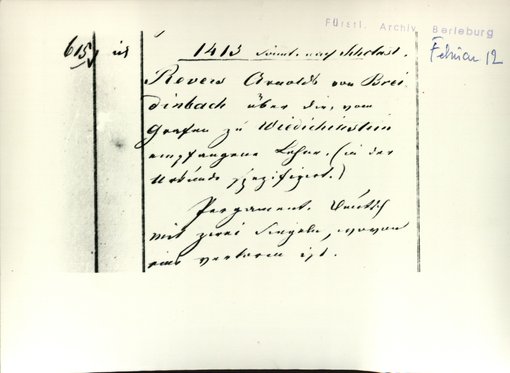 Fürstl. Archiv Berleburg
Februar 12
615
1413 Sonnt. nach Scholast.
Revers Arnolds von Brei
dinbach über die, vom
Grafen zu Wiedichinstein
empfangene Lehne. (in der
Urkunde spezifizirt.)
Pergament. Deutsch
mit zwei Siegeln, wovon
eins verloren ist.